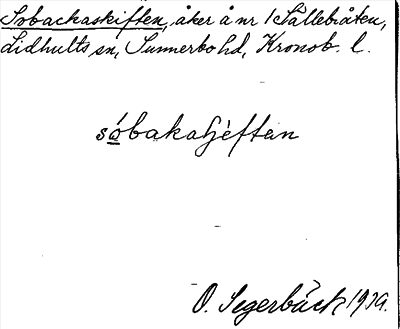 Sobackaskiften, åker å nr 1 Sällebråten,
Lidhults sn, Sunnerbo hd, Kronob. l.
sóbakaʃèftan
O. Segerbäck 1939.